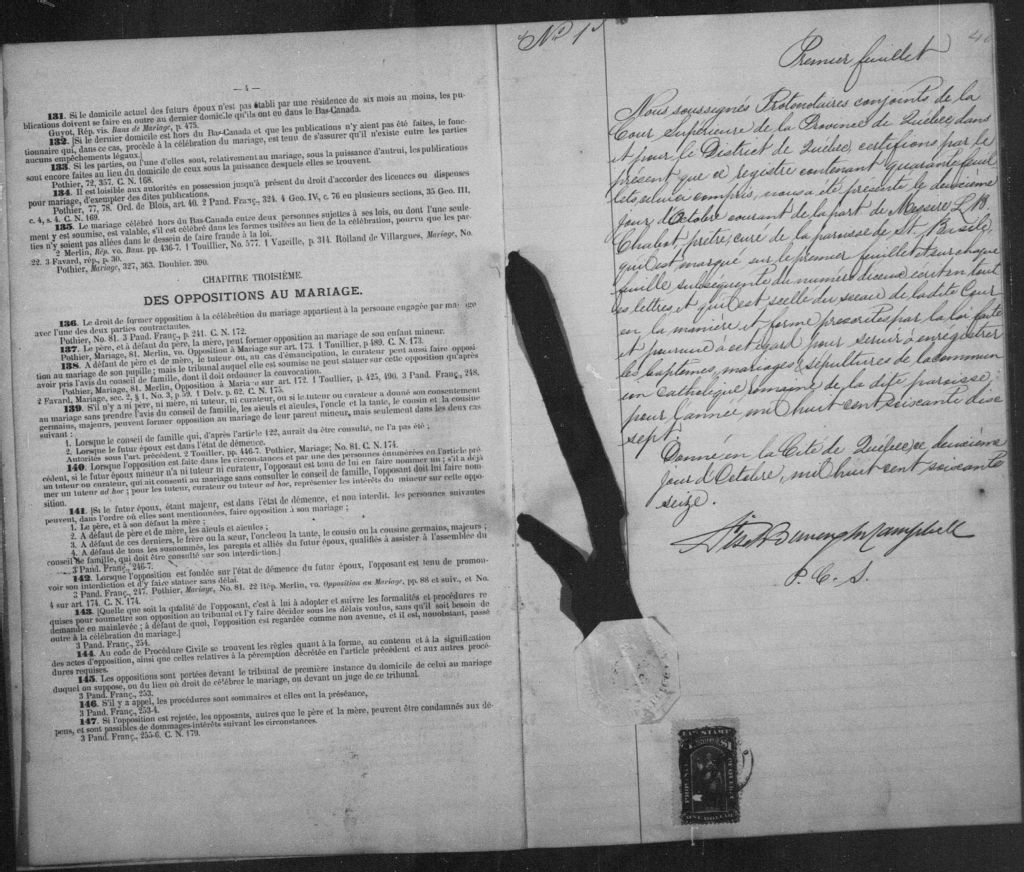 — 4 —
131. Si le domicile actuel des futurs époux n'est pas établi par une résidence de six mois au moins, les pu-
blications doivent se faire en outre au dernier domicile qu'ils ont eu dans le Bas-Canada.
Guyot, Rép. vis. Bans de Mariage, p. 475.
132. [Si le dernier domicile est hors du Bas-Canada et que les publications n'y aient pas été faites, le fonc-
tionnaire qui, dans ce cas, procède à la célébration du mariage, est tenu de s'assurer qu'il n'existe entre les parties
aucuns empêchements légaux.]
133. Si les parties, ou l'une d'elles sont, relativement au mariage, sous la puissance d'autrui, les publications
sont encore faites au lieu du domicile de ceux sous la puissance desquels elles se trouvent.
Pothier, 72, 357. C. N. 168.
134. Il est loisible aux autorités en possession jusqu'à présent du droit d'accorder des licences ou dispenses
pour mariage, d'exempter des dites publications.
Pothier, 77, 78. Ord. de Blois, art. 40. 2 Pand. Franç., 324. 4 Geo. IV, c. 76 en plusieurs sections, 35 Geo. III,
c. 4, s. 4. C. N. 169.
135. Le mariage célébré hors du Bas-Canada entre deux personnes sujettes à ses lois, ou dont l'une seule-
ment y est soumise, est valable, s'il est célébré dans les formes usitées au lieu de la célébration, pourvu que les par-
ties n'y soient pas allées dans le dessein de faire fraude à la loi.
2 Merlin, Rép. vo. Bans. pp. 436-7. 1 Touiller, No. 577. 1 Vazeille, p. 314. Rolland de Villargues, Mariage, No.
22. 3 Favard, rép., p. 30.
Pothier, Mariage, 327, 363. Bouhier. 390.
CHAPITRE TROISIÈME.
DES OPPOSITIONS AU MARIAGE.
136. Le droit de former opposition à la célébrétion du mariage appartient à la personne engagée par mariage
avec l'une des deux parties contractantes.
Pothier, No. 81. 3 Pand. Franç., p. 241. C. N. 172.
137. Le père, et à défaut du père, la mère, peut former opposition au mariage de son enfant mineur.
Pothier, Mariage, 81. Merlin, vo. Opposition à Mariage sur art. 173. 1 Touiller, p 489. C. N. 173.
138. A défaut de père et de mère, le tuteur ou, au cas d'émancipation, le curateur peut aussi faire opposi-
tion au mariage de son pupille; mais le tribunal auquel elle est soumise ne peut statuer sur cette opposition qu'après
avoir pris l'avis du conseil de famille, dont il doit ordonner la convocation.
Pothier, Mariage, 81. Merlin, Opposition à Maria e sur art. 172. 1 Toullier, p. 425, 490. 3 Pand. Franç., 248,
2 Favard, Mariage, sec. 2, § 1, No. 3, p.59. 1 Delv. p. 62. C. N. 175.
139. S'il n'y a ni père, ni mère, ni tuteur, ni curateur, ou si le tuteur ou curateur a donné son consentement
au mariage sans prendre l'avis du conseil de famille, les aieuls et aieules, l'oncle et la tante, le cousin et la cousine
germains, majeurs, peuvent former opposition au mariage de leur parent mineur, mais seulement dans les deux cas
suivant :
1. Lorsque le conseil de famille qui, d'après l'article 122, aurait du être consulté, ne l'a pas été ;
2. Lorsque le futur époux est dans l'état de démence.
Autorités sous l'art. précédent. 2 Touiller, pp. 446-7. Pothier, Mariage; No. 81. C. N. 174.
140. Lorsque l'opposition est faite dans les circonstances et par une des personnes énumérées en l'article pré-
cédent, si le futur époux mineur n'a ni tuteur ni curateur, l'opposant est tenu de lui en faire nommer un ; s'il a déjà
un tuteur ou curateur, qui ait consenti au mariage sans consulter le conseil de famille, l'opposant doit lui faire nom-
mer un tuteur ad hoc ; pour les tuteur, curateur ou tuteur ad hoc, représenter les intérêts du mineur sur cette oppo-
sition.
141. [Si le futur époux, étant majeur, est dans l'état de démence, et non interdit. les personnes suivantes
peuvent, dans l'ordre où elles sont mentionnées, faire opposition à son mariage ;
1. Le père, et à son défaut la mère ;
2. A défaut de père et de mère, les aieuls et aieules ;
3. A défaut de ces derniers, le frère ou la sœur, l'oncle ou la tante, le cousin ou la cousine germains, majeurs ;
4. A défaut de tous les susnommés, les parents et alliés du futur époux, qualifiés à assister à l'assemblée du
conseil de famille, qui doit être consulté sur son interdiction.]
3 Pand. Franç., 246-7.
142. Lorsque l'opposition est fondée sur l'état de démence du futur époux, l'opposant est tenu de promou-
voir son interdiction et d'y faire statuer sans délai.
3 Pand. Franç., 247. Pothier, Mariage, No. 81. 22 Rép. Merlin, vo. Opposition au Mariage, pp. 88 et suiv., et No.
4 sur art. 174. C. N. 174.
143. [Quelle que soit la qualité de l'opposant, c'est à lui à adopter et suivre les formalités et procédures re
quises pour soumettre son opposition au tribunal et l'y faire décider sous les délais voulus, sans qu'il soit besoin de
demande en mainlevée ; à défaut de quoi, l'opposition est regardée comme non avenue, et il est, nonobstant, passé
outre à la célébration du mariage.]
3 Pand. Franç., 254.
144. Au code de Procédure Civile se trouvent les règles quant à la forme, au contenu et à la signification
des actes d'opposition, ainsi que celles relatives à la péremption décrétée en l'article précédent et aux autres procé-
dures requises.
145. Les oppositions sont portées devant le tribunal de première instance du domicile de celui au mariage
duquel on suppose, ou du lieu où droit de célébrer le mariage, ou devant un juge de ce tribunal.
3 Pand. Franç., 253.
146. S'il y a appel, les procédures sont sommaires et elles ont la préséance,
3 Pand. Franç., 253-4.
147. Si l'opposition est rejetée, les opposants, autres que le père et la mère, peuvent être condamnés aux dé-
pens, et sont passibles de dommages-intérêts suivant les circonstances.
3 Pand. Franç., 255-6. C. N. 179.
No 1
Premier feuillet
Nous soussignés Protonotaires conjoints de la
Cour Supérieure de la Province de Québec dans
et pour le District de Québec, certifions par le
présent que ce registre contenant quarante feuil
lets, celui ci compris, nous a été présenté le deuxième
jour d'Octobre courant de la part de Messire L. B.
Chabot, prêtre, curé de la paroisse de St. Basile,
qu'il est marqué sur le premier feuillet et sur chaque
feuille subséquente du numéro d'iceux écrit en tout
es lettres, et qu'il est scellé du sceau de la dite Cour
en la manière et forme prescrites par la loi faite
et pourvue à cet égard pour servir à enregistrer
les baptêmes, mariages & sépultures de la commun
ion Catholique romaine de la dite paroisse
pour l'année mil huit cent soixante dixe
sept.
Donné en la Cité de Québec, ce deuxième
jour d'Octobre, mil huit cent soixante
seize.
Campbell
P. C. S.
LAW STAMP
$1
QUEBEC
ONE DOLLAR